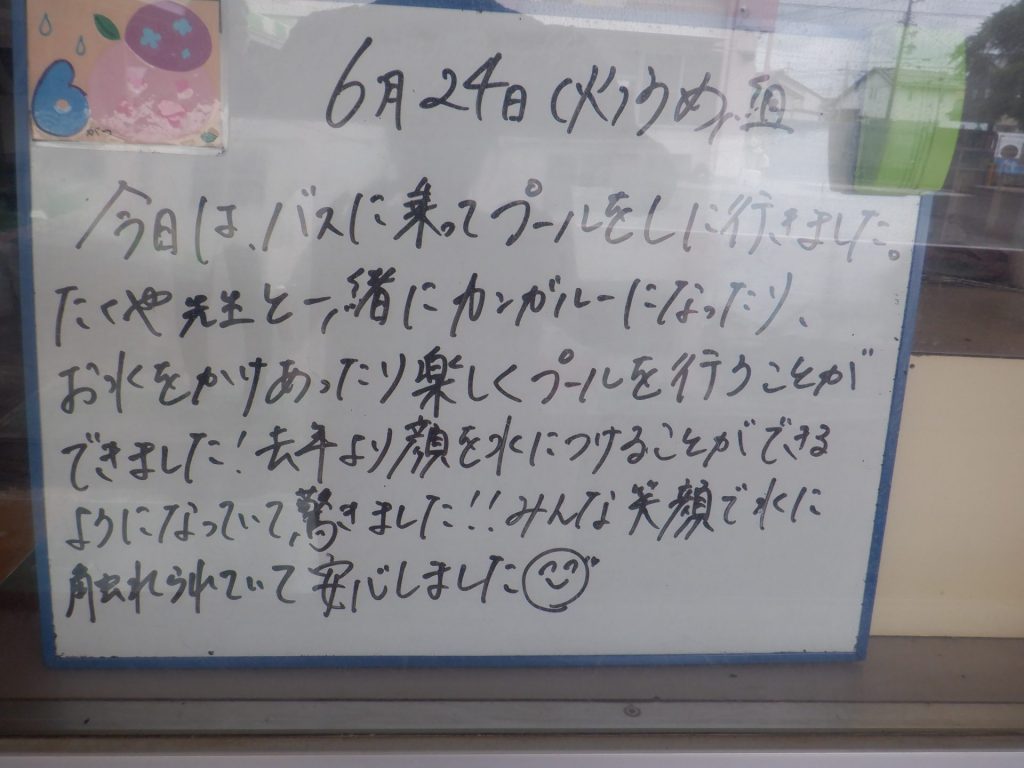 6
がつ
6月24日(火)うめ組
今日は、バスに乗ってプールをしに行きました。
たくや先生と一緒にカンガルーになったり、
お水をかけあったり楽しくプールを行うことが
できました!去年より顔を水につけることができる
ようになっていて、驚きました!!みんな笑顔で水に
触れられていて安心しました